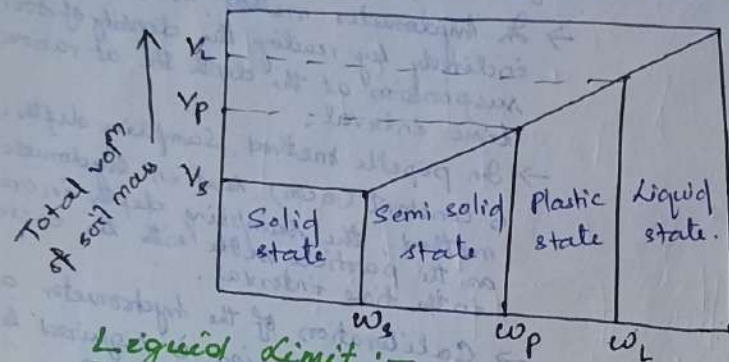 V_L
V_P
V_S
Total volm
of soil mass
Solid
state
Semi solid
state
Plastic
state
Liquid
state.
w_s
w_p
w_L
Liquid Limit :-